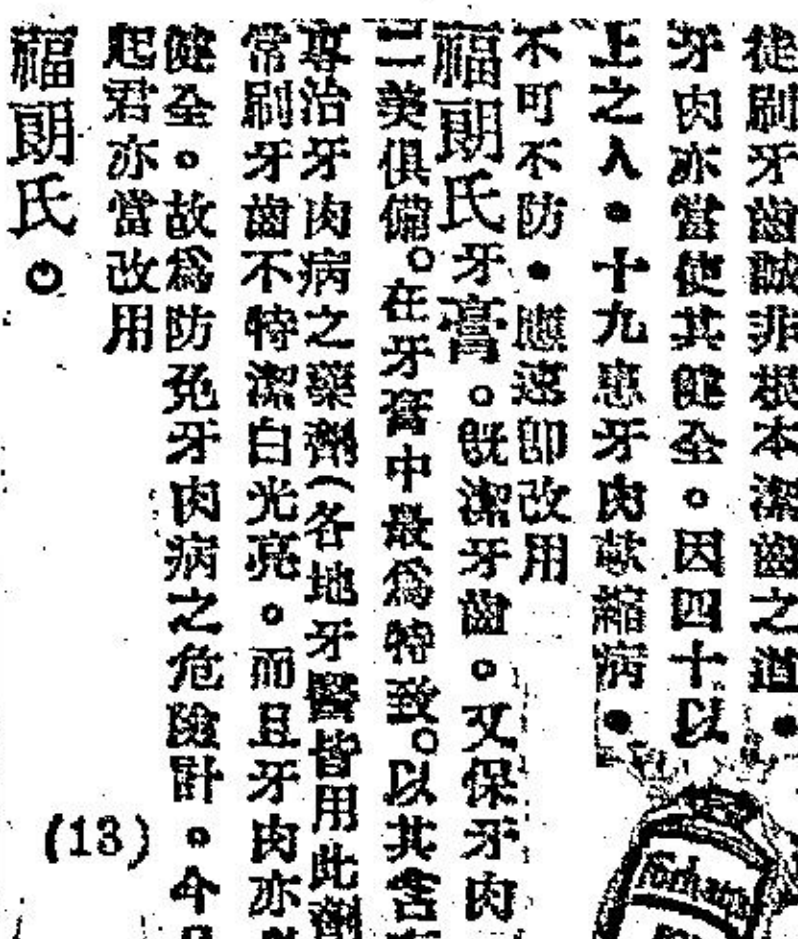 徒刷牙齒誠非根本潔齒之道。
牙肉亦當使其健全。因四十以
上之人。十九患牙肉歛縮病。
不可不防。應速卽改用
福朗氏牙膏。旣潔牙齒。又保牙肉
二美俱備。在牙膏中最爲特致。以其含有
專治牙肉病之藥劑(各地牙醫皆用此劑
常刷牙齒不特潔白光亮。而且牙肉亦
健全。故爲防免牙肉病之危險計。今日
起君亦當改用
福朗氏。
(13)
Forhan's